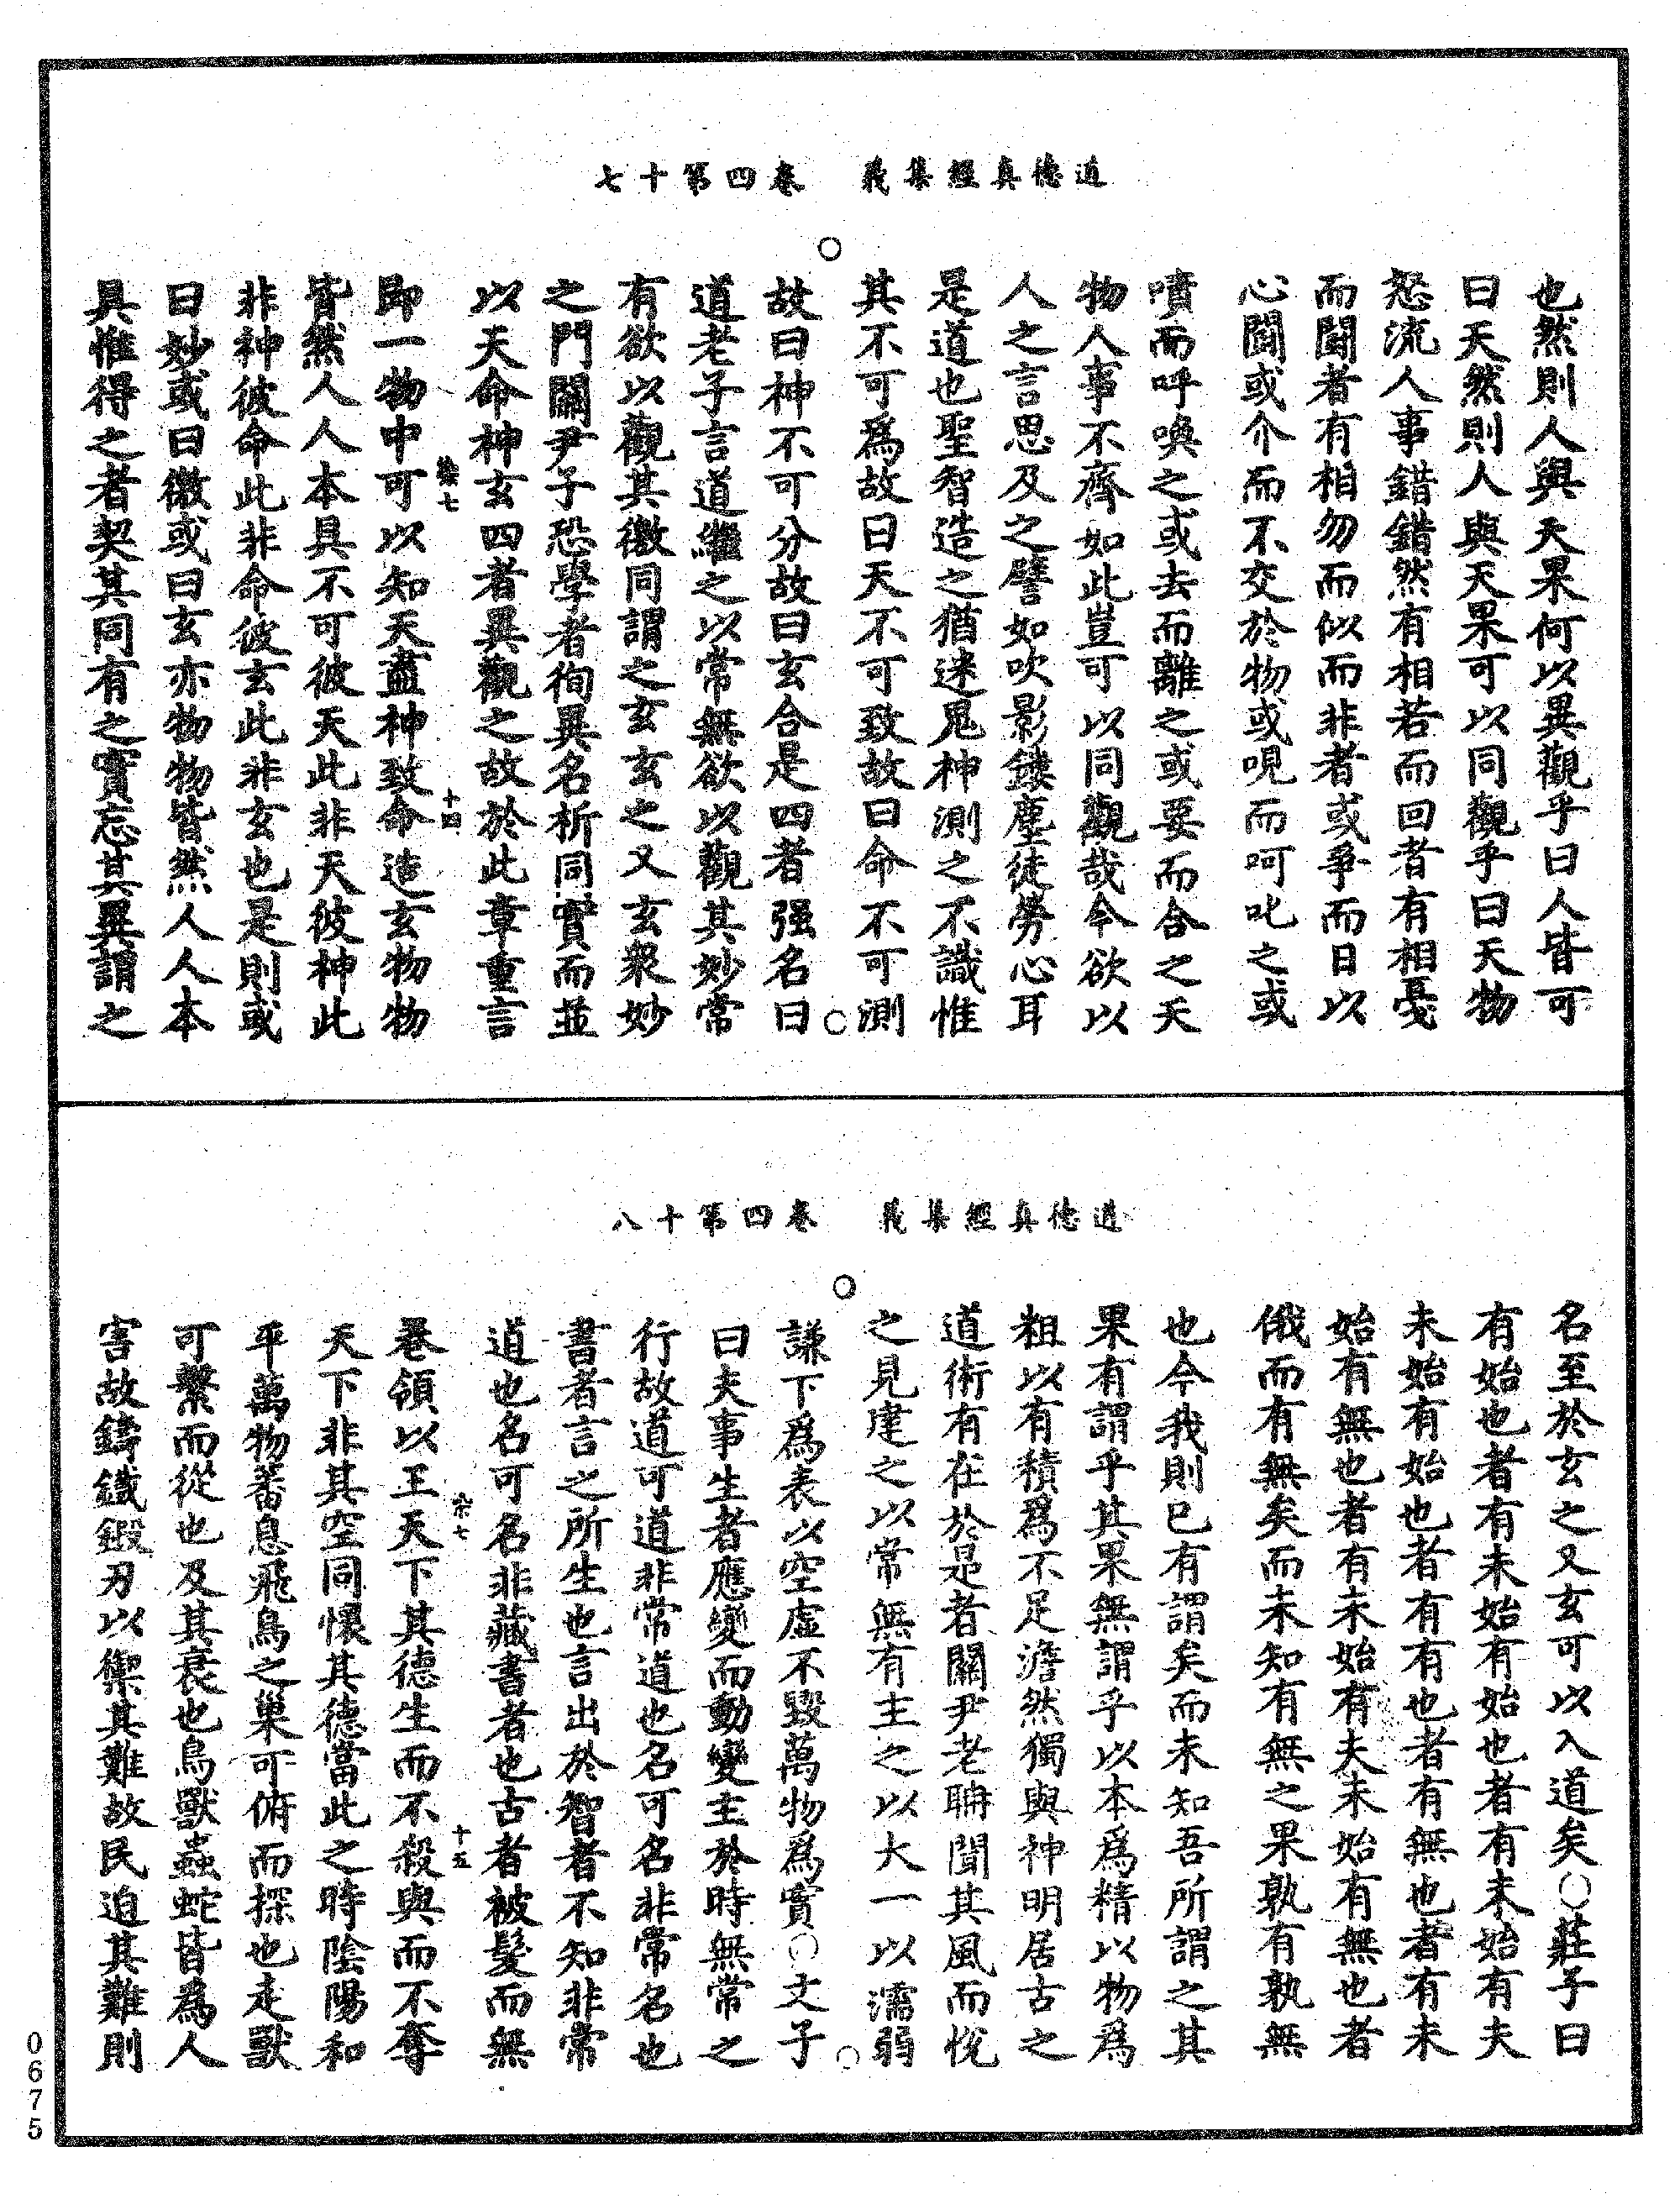 道德真經集義　卷四第十七
也然則人與天果何以異觀乎曰人皆可
曰天然則人與天果可以同觀乎曰天物
怒流人事錯錯然有相若而回者有相戞
而鬪者有相勿而似而非者或爭而日以
心鬪或介而不交於物或哯而呵叱之或
噴而呼喚之或去而離之或要而合之天
物人事不齊如此豈可以同觀哉今欲以
人之言思及之譬如吹影鏤塵徒勞心耳
是道也聖智造之猶迷鬼神測之不識惟
其不可爲故曰天不可致故曰命不可測
故曰神不可分故曰玄合是四者强名曰
道老子言道繼之以常無欲以觀其妙常
有欲以觀其徼同謂之玄玄之又玄衆妙
之門關尹子恐學者徇異名析同實而並
以天命神玄四者異觀之故於此章重言
即一物中可以知天盡神致命造玄物物
皆然人人本具不可彼天此非天彼神此
非神彼命此非命彼玄此非玄也是則或
曰妙或曰徼或曰玄亦物物皆然人人本
具惟得之者契其同有之實忘其異謂之
道德真經集義　卷四第十八
名至於玄之又玄可以入道矣○莊子曰
有始也者有未始有始也者有未始有夫
未始有始也者有有也者有無也者有未
始有無也者有未始有夫未始有無也者
俄而有無矣而未知有無之果孰有孰無
也今我則已有謂矣而未知吾所謂之其
果有謂乎其果無謂乎以本爲精以物爲
粗以有積爲不足澹然獨與神明居古之
道術有在於是者關尹老聃聞其風而悅
之見建之以常無有主之以大一以濡弱
謙下爲表以空虛不毀萬物爲實○文子
曰夫事生者應變而動變主於時無常之
行故道可道非常道也名可名非常名也
書者言之所生也言出於智者不知非常
道也名可名非藏書者也古者被髮而無
卷領以王天下其德生而不殺與而不奪
天下非其空同懷其德當此之時陰陽和
平萬物蕃息飛鳥之巢可俯而探也走獸
可繫而從也及其衰也鳥獸蟲蛇皆爲人
害故鑄鐵鍛刃以禦其難故民迫其難則
十四
十五
0675